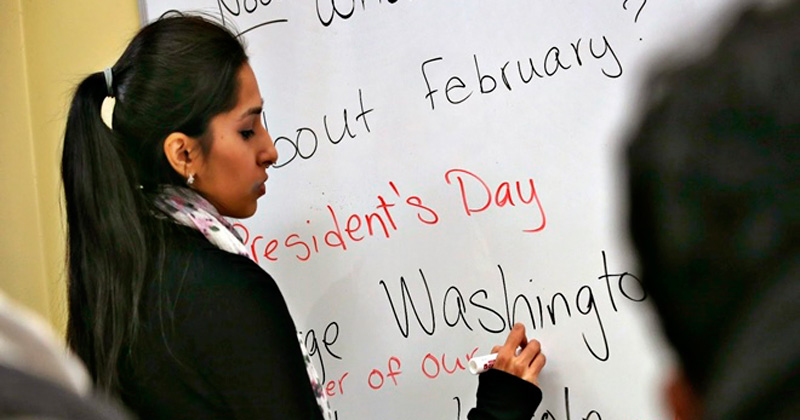 About February?
President's Day
ge Washingto
er of our